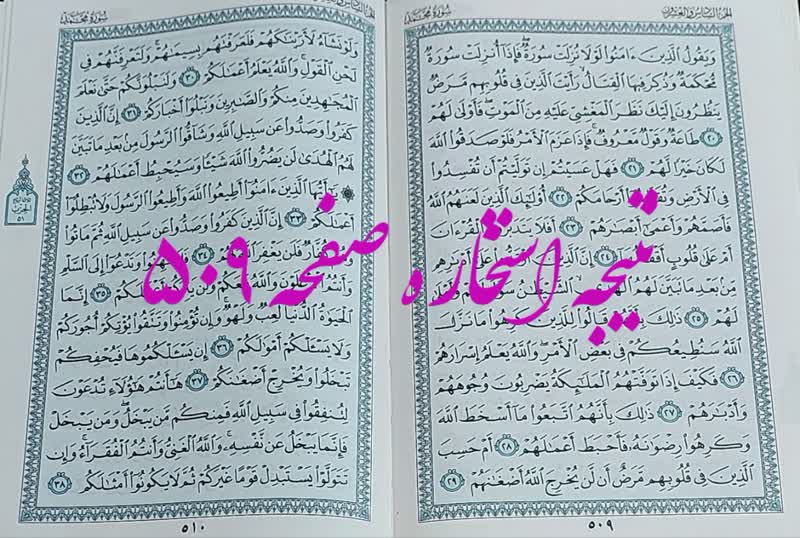 الجزء السادس والعشرون
سورة محمد
ويقول الذين ءامنوا لولا نزلت سورة فإذا أنزلت سورة
محكمة وذكر فيها القتال رأيت الذين في قلوبهم مرض
ينظرون إليك نظر المغشي عليه من الموت فأولى لهم
٢٠ طاعة وقول معروف فإذا عزم الأمر فلو صدقوا الله
لكان خيرا لهم ٢١ فهل عسيتم إن توليتم أن تفسدوا
في الأرض وتقطعوا أرحامكم ٢٢ أولئك الذين لعنهم الله
فأصمهم وأعمى أبصرهم ٢٣ أفلا يتدبرون القرءان
أم على قلوب أقفالها ٢٤ إن الذين ارتدوا على أدبرهم
من بعد ما تبين لهم الهدى الشيطن سول لهم وأملى
لهم ٢٥ ذلك بأنهم قالوا للذين كرهوا ما نزل
الله سنطيعكم في بعض الأمر والله يعلم إسرارهم
٢٦ فكيف إذا توفتهم الملئكة يضربون وجوههم
وأدبرهم ٢٧ ذلك بأنهم اتبعوا ما أسخط الله
وكرهوا رضونه فأحبط أعملهم ٢٨ أم حسب
الذين في قلوبهم مرض أن لن يخرج الله أضغنهم ٢٩
٥٠٩
الجزء السادس والعشرون
سورة محمد
ولو نشاء لأرينكهم فلعرفتهم بسيمهم ولتعرفنهم في
لحن القول والله يعلم أعملكم ٣٠ ولنبلونكم حتى نعلم
المجهدين منكم والصبرين ونبلوا أخباركم ٣١ إن الذين
كفروا وصدوا عن سبيل الله وشاقوا الرسول من بعد ما تبين
لهم الهدى لن يضروا الله شيئا وسيحبط أعملهم ٣٢
۞ يأيها الذين ءامنوا أطيعوا الله وأطيعوا الرسول ولا تبطلوا
أعملكم ٣٣ إن الذين كفروا وصدوا عن سبيل الله ثم ماتوا
وهم كفار فلن يغفر الله لهم ٣٤ فلا تهنوا وتدعوا إلى السلم
وأنتم الأعلون والله معكم ولن يتركم أعملكم ٣٥ إنما
الحيوة الدنيا لعب ولهو وإن تؤمنوا وتتقوا يؤتكم أجوركم
ولا يسئلكم أمولكم ٣٦ إن يسئلكموها فيحفكم
تبخلوا ويخرج أضغنكم ٣٧ هأنتم هؤلاء تدعون
لتنفقوا في سبيل الله فمنكم من يبخل ومن يبخل
فإنما يبخل عن نفسه والله الغني وأنتم الفقراء وإن
تتولوا يستبدل قوما غيركم ثم لا يكونوا أمثلكم ٣٨
٥١٠
الحزب
٥١
نتیجه استخاره صفحه ۵۰۹